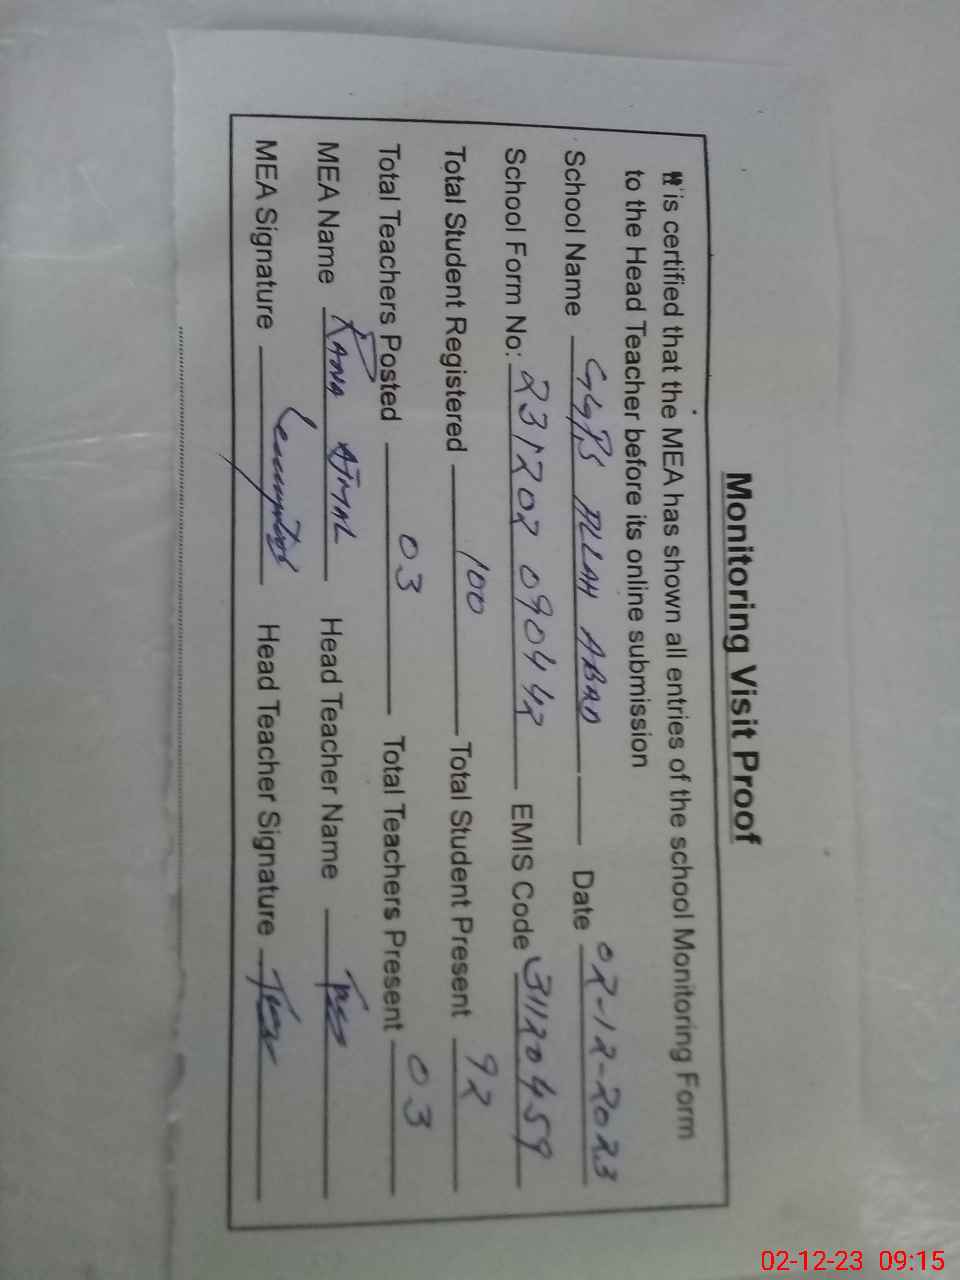 Monitoring Visit Proof
It is certified that the MEA has shown all entries of the school Monitoring Form
to the Head Teacher before its online submission
School Name GGPS ALLAH ABAD Date 02-12-2023
School Form No: 231202 090442 EMIS Code 31120459
Total Student Registered 100 Total Student Present 92
Total Teachers Posted 03 Total Teachers Present 03
MEA Name RANA AJMAL Head Teacher Name
MEA Signature Head Teacher Signature
02-12-23 09:15